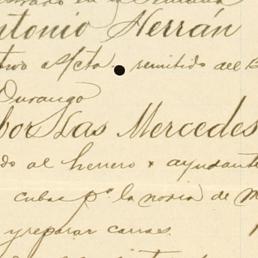 ntonio Herrán
tivo a/cta, remitido al B
Durango
bor Las Mercedes
do al herrero & ayudante
cubas pa la noria de M
y reparar carros.